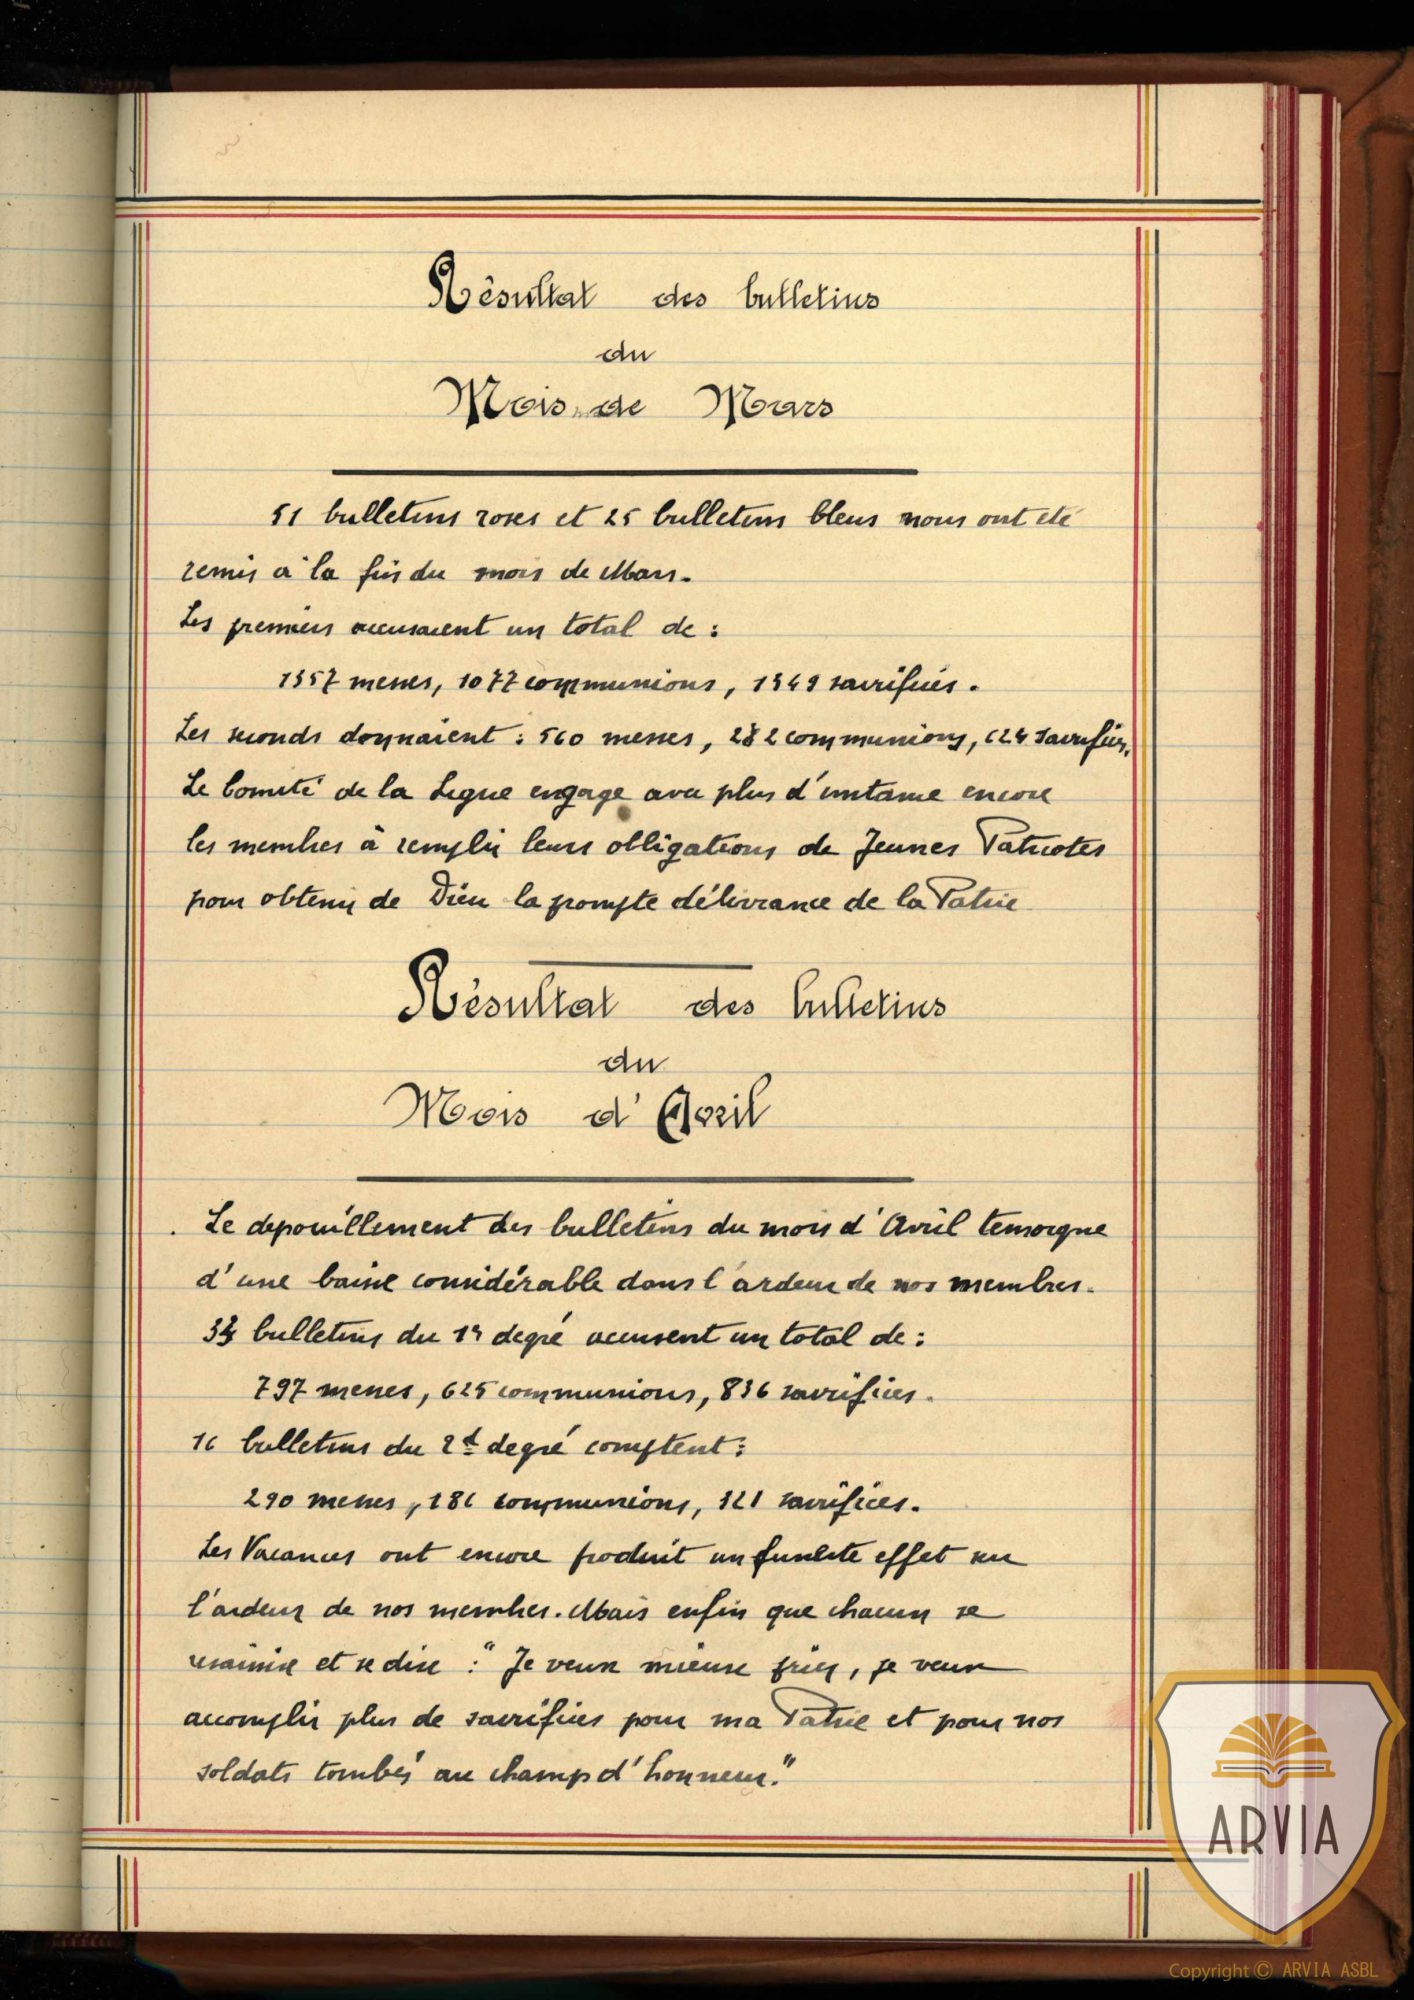 Résultat des bulletins
du
Mois de Mars
51 bulletins roses et 25 bulletins bleus nous ont été
remis à la fin du mois de Mars.
Les premiers accusaient un total de :
1357 messes, 1077 communions, 1349 sacrifices.
Les seconds donnaient : 560 messes, 282 communions, 624 sacrifices.
Le Comité de la Ligue engage avec plus d'instance encore
les membres à remplir leurs obligations de Jeunes Patriotes
pour obtenir de Dieu la prompte délivrance de la Patrie
Résultat des bulletins
du
Mois d'Avril
Le depouillement des bulletins du mois d'Avril temoigne
d'une baisse considérable dans l'ardeur de nos membres.
bulletins du 1r degré accusent un total de :
797 messes, 625 communions, 836 sacrifices.
16 bulletins du 2d degré comptent :
290 messes, 186 communions, 321 sacrifices.
Les Vacances ont encore produit un funeste effet sur
l'ardeur de nos membres. Mais enfin que chacun se
ranime et se dise : "Je veux mieux prier, je veux
accomplir plus de sacrifices pour ma Patrie et pour nos
soldats tombés au champ d'honneur."
ARVIA
Copyright © ARVIA ASBL